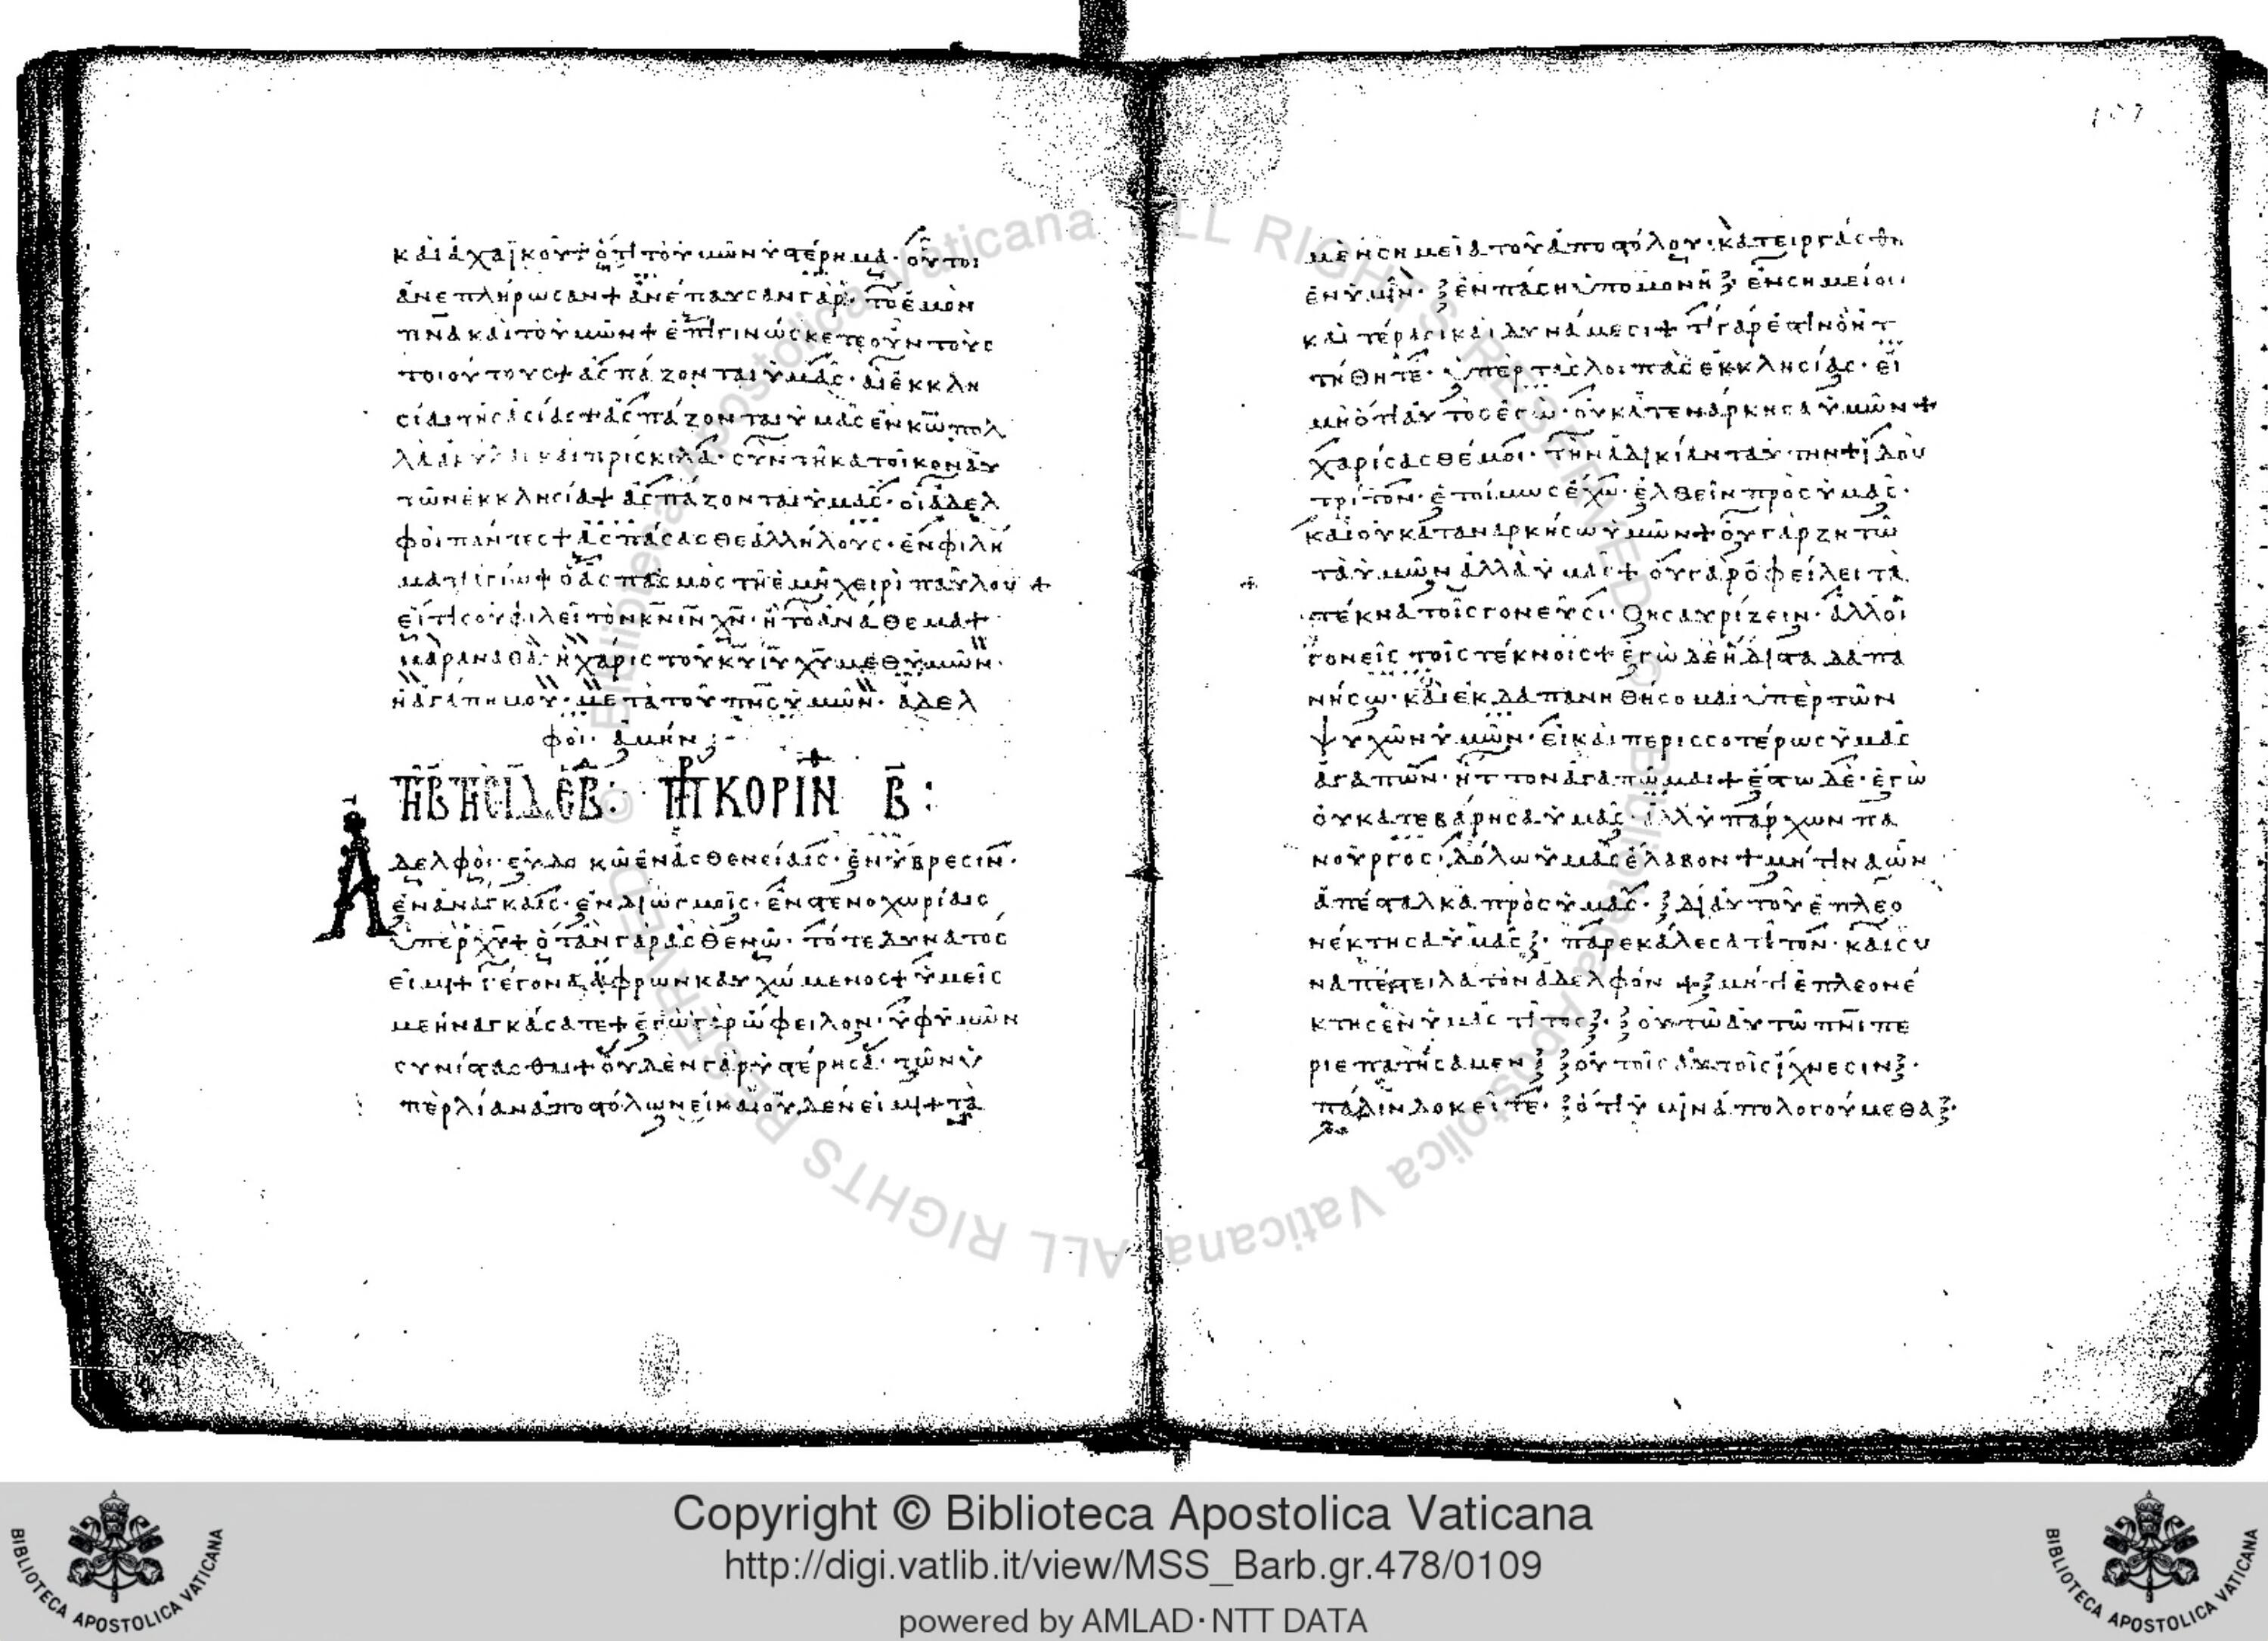 καὶ ἀχαϊκοῦ + ὅτι τὸ ὑμῶν ὑστέρημα · οὗτοι
ἀνεπλήρωσαν + ἀνέπαυσαν γὰρ · τὸ ἐμὸν
πνα καὶ τὸ ὑμῶν + ἐπιγινώσκετε οὖν τοὺς
τοιούτους + ἀσπάζονται ὑμᾶς · αἱ ἐκκλη
σίαι τῆς ἀσίας + ἀσπάζονται ὑμᾶς ἐν κω πολ
λὰ ἀκύλας καὶ πρίσκιλα · σὺν τῆ κατοῖκον αὐ
τῶν ἐκκλησία + ἀσπάζονται ὑμᾶς · οἱ ἀδελ
φοὶ πάντες + ἀσπάσασθε ἀλλήλους · ἐν φιλή
ματι ἁγίω + ὁ ἀσπασμὸς τῆ ἐμῆ χειρὶ παύλου +
εἴ τις οὐ φιλεῖ τὸν κν ιν χν · ἤτω ἀνάθεμα +
μαρὰν ἀθὰ · ἡ χάρις τοῦ κυ ιυ χυ μεθ ὑμῶν ·
ἡ ἀγάπη μου · μετὰ τοῦ πνς ὑμῶν · ἀδελ
φοί · ἀμήν :-
ΚΟΡΙΝ Β :
Ἀδελφοὶ · εὐδοκῶ ἐν ἀσθενείαις · ἐν ὕβρεσιν ·
ἐν ἀνάγκαις · ἐν διωγμοῖς · ἐν στενοχωρίαις
ὑπὲρ χυ + ὅταν γὰρ ἀσθενῶ · τότε δυνατός
εἰμι + γέγονα ἄφρων καυχώμενος + ὑμεῖς
με ἠναγκάσατε + ἐγὼ γὰρ ὤφειλον · ὑφ ὑμῶν
συνίστασθαι + οὐδὲν γὰρ ὑστέρησα · τῶν ὑ
πὲρ λίαν ἀποστόλων εἰ καὶ οὐδέν εἰμι + τὰ
μὲν σημεῖα τοῦ ἀποστόλου · κατειργάσθη
ἐν ὑμῖν · ἐν πάση ὑπομονῆ ἐν σημείοις
καὶ τέρασι καὶ δυνάμεσι + τί γάρ ἐστιν ὃ ἡτ
τήθητε · ὑπὲρ τὰς λοιπὰς ἐκκλησίας · εἰ
μὴ ὅτι αὐτὸς ἐγὼ · οὐ κατενάρκησα ὑμῶν +
χαρίσασθέ μοι · τὴν ἀδικίαν ταύτην + ἰδοὺ
τρίτον · ἑτοίμως ἔχω · ἐλθεῖν πρὸς ὑμᾶς ·
καὶ οὐ καταναρκήσω ὑμῶν + οὐ γὰρ ζητῶ
τὰ ὑμῶν ἀλλὰ ὑμᾶς + οὐ γὰρ ὀφείλει τὰ
τέκνα τοῖς γονεῦσι · θησαυρίζειν · ἀλλ οἱ
γονεῖς τοῖς τέκνοις + ἐγὼ δὲ ἥδιστα δαπα
νήσω · καὶ ἐκδαπανηθήσομαι ὑπὲρ τῶν
ψυχῶν ὑμῶν · εἰ καὶ περισσοτέρως ὑμᾶς
ἀγαπῶν · ἧττον ἀγαπῶμαι + ἔστω δὲ · ἐγὼ
οὐ κατεβάρησα ὑμᾶς · ἀλλ ὑπάρχων πα
νοῦργος · δόλω ὑμᾶς ἔλαβον + μή τινα ὧν
ἀπέσταλκα πρὸς ὑμᾶς · δι αὐτοῦ ἐπλεο
νέκτησα ὑμᾶς · παρεκάλεσα τίτον · καὶ συ
ναπέστειλα τὸν ἀδελφόν + μή τι ἐπλεονέ
κτησεν ὑμᾶς τίτος · οὐ τῶ αὐτῶ πνι πε
ριεπατήσαμεν οὐ τοῖς αὐτοῖς ἴχνεσιν ·
πάλιν δοκεῖτε · ὅτι ὑμῖν ἀπολογούμεθα ·
Copyright © Biblioteca Apostolica Vaticana
http://digi.vatlib.it/view/MSS_Barb.gr.478/0109
powered by AMLAD·NTT DATA